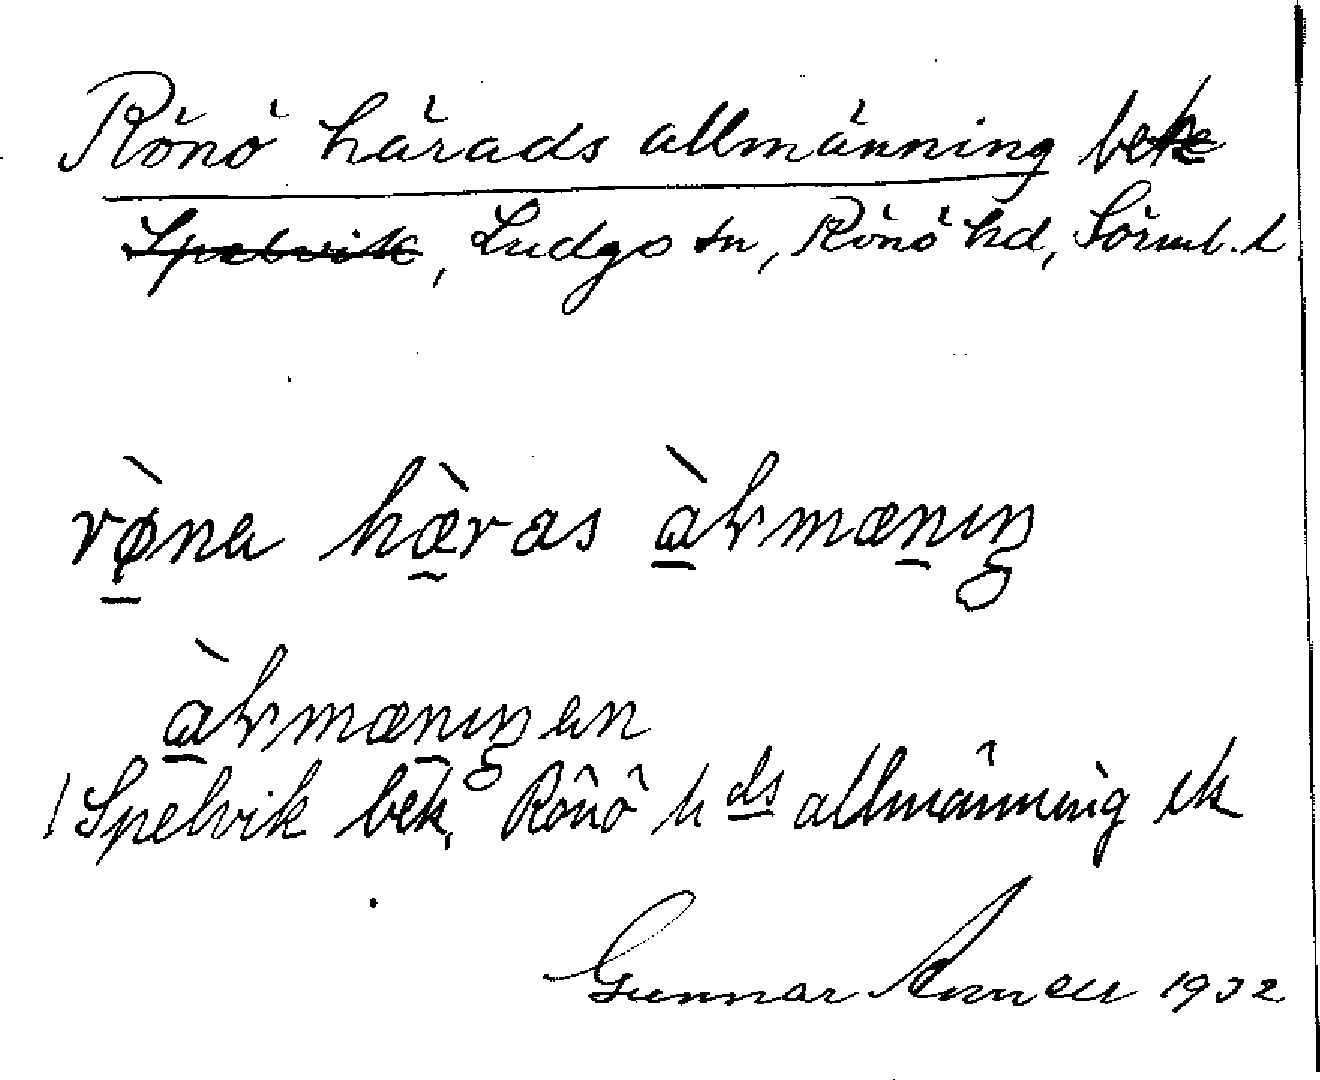 Rönö härads allmänning bek
Spelvik, Ludgo sn, Rönö hd, Sörml. l
rø̀na hæ̀ras àlvmænıŋ
àlvmænıŋen
! Spelvik bek, Rönö hds allmänning ek
Gunnar 1932